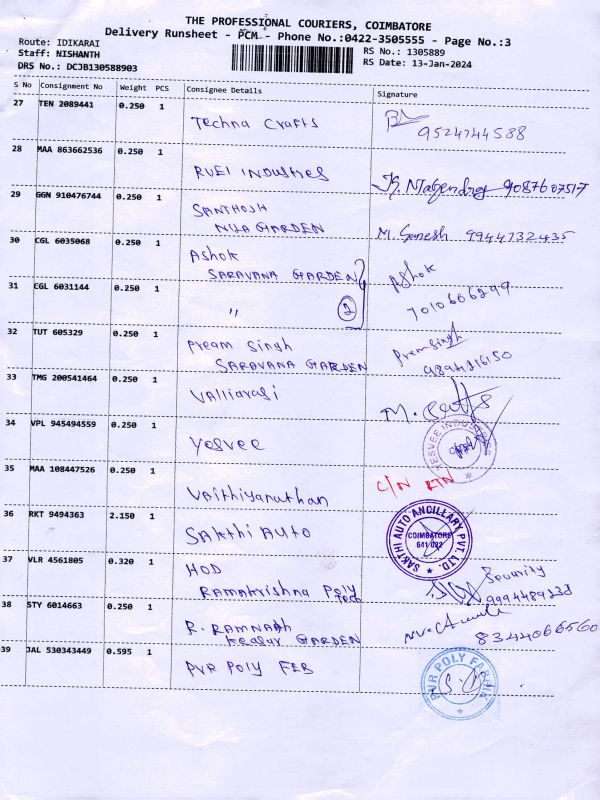 THE PROFESSIONAL COURIERS, COIMBATORE
Delivery Runsheet - PCM - Phone No.:0422-3505555 - Page No.:3
Route: IDIKARAI
Staff: NISHANTH
DRS No.: DCJB130588903
RS No.: 1305889
RS Date: 13-Jan-2024
S No Consignment No Weight PCS Consignee Details Signature
27 TEN 2089441 0.250 1
Techna Crafts
9524744588
28 MAA 863662536 0.250 1
RUEI INDUSTRIES
K. Nagendra 9087607517
29 GGN 910476744 0.250 1
SANTHOSH
NILA GARDEN
M. Ganesh 9944732435
30 CGL 6035068 0.250 1
Ashok
SARAVANA GARDEN
Ashok
31 CGL 6031144 0.250 1
" 2
7010606299
32 TUT 605329 0.250 1
Pream Singh
SARAVANA GARDEN
Prem Singh
33 TMG 200541464 0.250 1
Valliarasi
34 VPL 945494559 0.250 1
Yesvee
YESVEE INDUSTRIES
35 MAA 108447526 0.250 1
Vaithiyanathan
C/N RTN
36 RKT 9494363 2.150 1
SAKthi AUTO
SAKTHI AUTO ANCILLARY PVT. LTD.
COIMBATORE
641 022
37 VLR 4561805 0.320 1
HOD
Ramakrishna Poly Tech
Security
38 STY 6014663 0.250 1
R. RAMNATH
GARDEN
8344066560
39 JAL 530343449 0.595 1
PVR POLY FEB
PVR POLY FABRIK